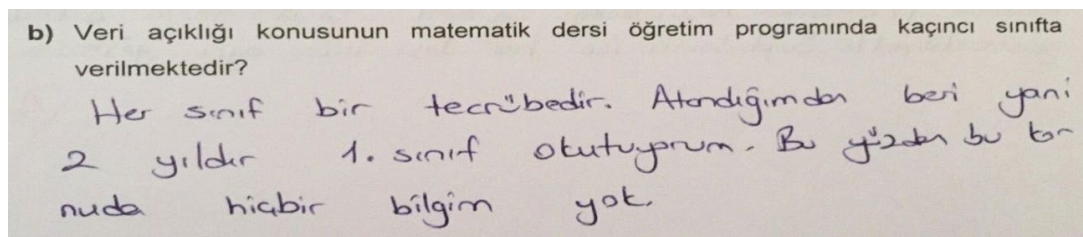 b) Veri açıklığı konusunun matematik dersi öğretim programında kaçıncı sınıfta
verilmektedir?
Her sınıf bir tecrübedir. Atandığımdan beri yani
2 yıldır 1. sınıf okutuyorum. Bu yüzden bu ko
nuda hiçbir bilgim yok.